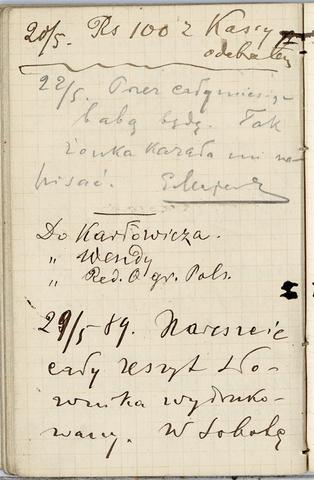 20/5. Rs 100 z Kassy
odebrałem
22/5. Przez cały miesiąc
babą będę. Tak
żonka kazała mi na-
pisać.
Do Karłowicza.
" Wendy
" Red. O gr. Pols.
29/5 89. Nareszcie
cały zeszyt Sło-
wnika wydruko-
wany. W Sobotę